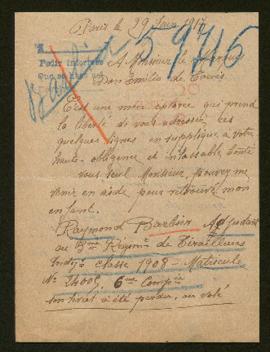 Paris le 29 1917
59746
Pedir informes
A Monsieur le Marquis
Don Emilio de Torres
C'est une mère éplorée qui prend
la liberté de vous adresser ces
quelques lignes en suppliant votre
haute obligence et inlassable bonté
vous seul Monsieur, pouvez me
venir en aide pour retrouver mon
enfant.
Raymond Barbier Adjudant
au Régim. de Tirailleurs
classe 1908 - Matricule
No 6me Compie
a été perdu, ou volé